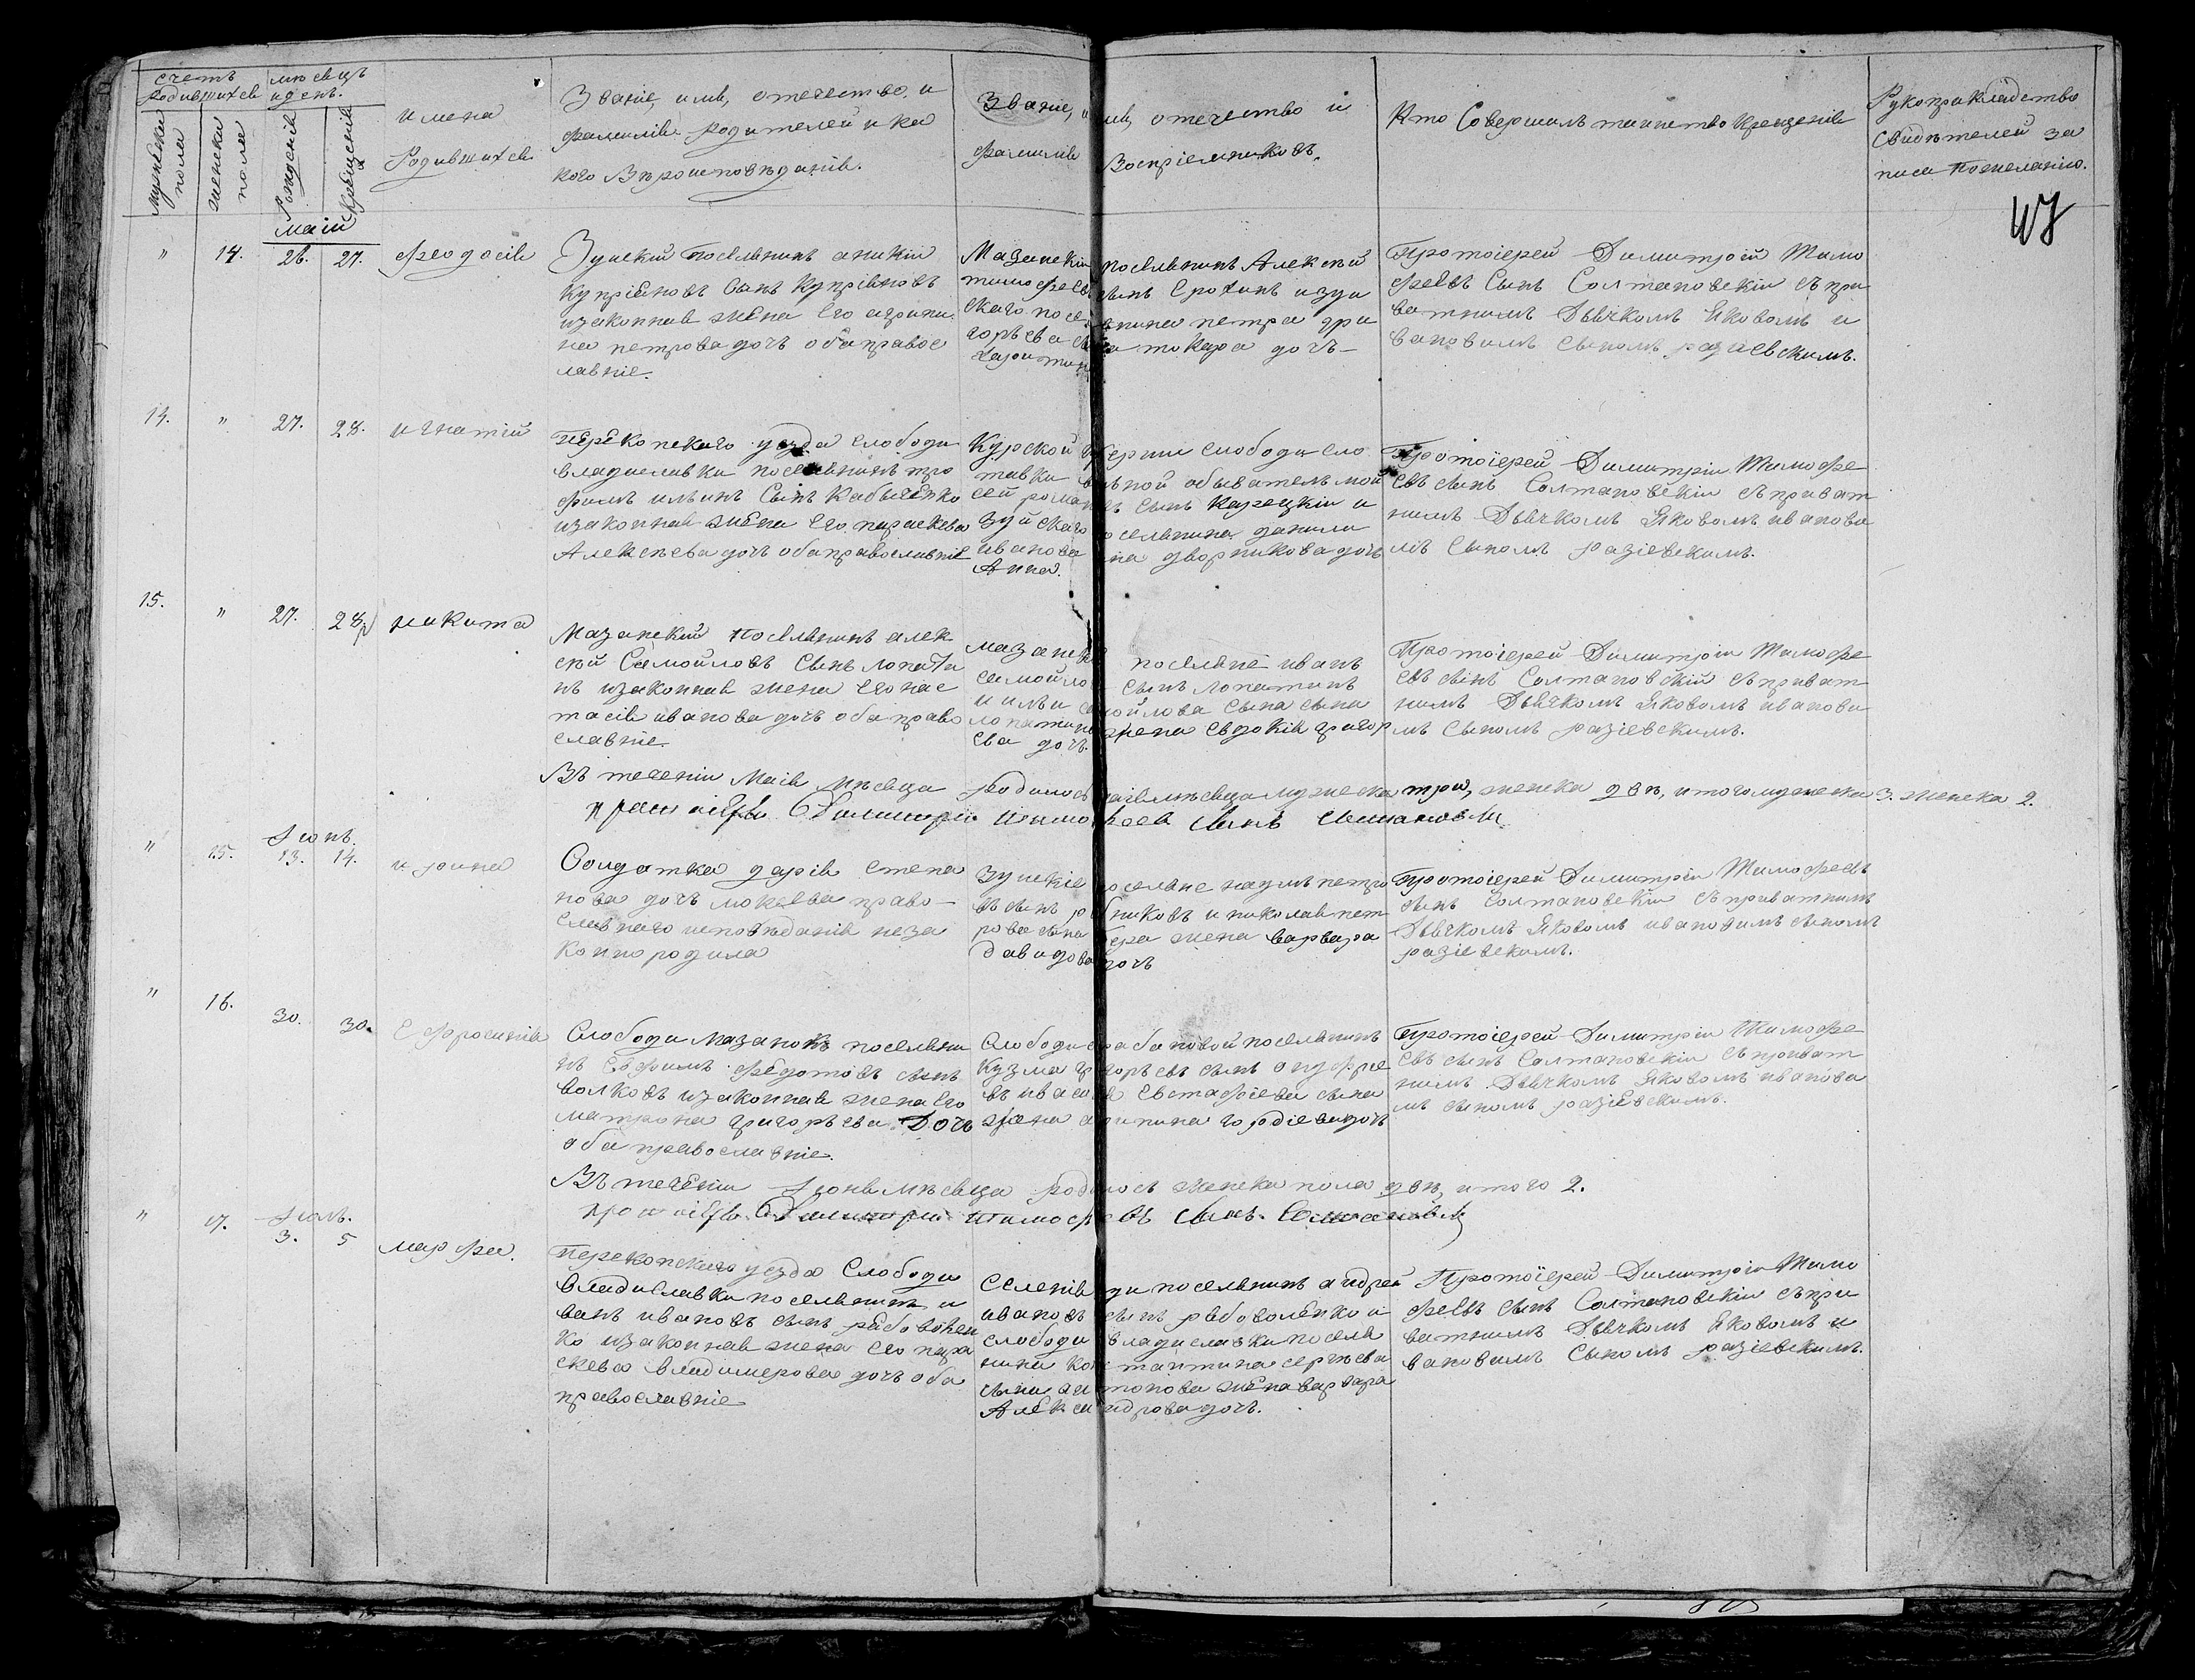 счетъ
родившихся
мѣсяцъ
и день.
мужеска
пола
женска
пола
Рожденія
Крещенія
имена
Родившихся
Званіе, имя, отечество, и
фамилія родителей и ка
кого Вѣроисповѣданія.
Званіе, имя, отечество и
фамилія Воспріемниковъ.
Кто Совершалъ таинство Крещенія
Рукоприкладство
Свидѣтелей за
писи по желанію.
Маій
" 14. 26. 27. Феодосія
Зуйскій поселянинъ аникій
Купріяновъ Сынъ Купріяновъ
изаконная жена Его агрипи
на петрова дочь оба правос
лавніе.
Мазанскій поселянинъ Алексѣй
тимофеевъ сынъ Ерохинъ и зуй
скаго поселянина петра гри
горьева сына токаря дочь
Харитина
Протоіерей Димитрій Тимо
феевъ Сынъ Солтановскій съ при
ватнимъ Дьячкомъ Яковомъ и
вановимъ Сыномъ разіевскимъ.
14. " 27. 28. игнатій
Перекопского уезда слободи
владиславки поселянинъ тро
фимъ ильинъ Сынъ Кабыченко
изаконная жена Его параскева
Алексеева дочь оба православніе
Курской губерніи слободи сло
Анна.
Протоіерей Димитрій Тимофе
евъ сынъ Солтановскій съ приват
нимъ Дьячкомъ Яковомъ иванови
мъ Сыномъ разіевскимъ.
15. " 27. 28. никита
Мазанскій поселянинъ алек
сѣй Самойловъ Сынъ лопати
нъ изаконная жена Его нас
тасія иванова дочь оба право
славніе.
мазанскіе поселяне иванъ
самойловъ сынъ лопатинъ
и ильи самойлова сына сына
лопатина жена Евдокія григор
ева дочь.
Протоіерей Димитрій Тимофе
евъ сынъ Солтановскій съ приват
нимъ Дьячкомъ Яковомъ иванови
мъ Сыномъ разіевскимъ.
Въ теченіи Маія мѣсяца родилось маія мѣсяца мужеска три, женска двѣ, итого мужеска 3. женска 2.
протоіерей Димитрій Тимофеев Сынъ Солтановскій
Іюнь.
" 15. 13. 14. ирина
Солдатка дарія степа
нова дочь мокеева право-
славнаго исповѣданія неза
конно родила
зуйскіе поселяне наумъ петро
въ сынъ рибниковъ и николая пет
рова сына жена варвара
давидова дочь
Протоіерей Димитрій Тимофеевъ
сынъ Солтановскій съ приватнимъ
Дьячкомъ Яковомъ ивановимъ сыномъ
разіевскимъ.
" 16. 30. 30. Ефросинія
Слободи Мазанокъ поселяни
нъ Евфимъ федотовъ сынъ
волковъ изаконная жена Его
матрона григорьева Дочь
оба православніе.
Слободи поселянинъ
Кузма григорьевъ сынъ онуфрие
въ Евстафіева сына
жена гордіева дочь
Протоіерей Димитрій Тимофе
евъ сынъ Солтановскій съ приват
нимъ Дьячкомъ Яковомъ иванови
мъ сыномъ разіевскимъ.
Въ теченіи Іюня мѣсяца родилось женска пола двѣ, итого 2.
протоіерей Димитрій Тимофеевъ Сынъ Солтановскій
Іюль.
" 17. 3. 5 марфа.
Перекопского уезда Слободи
владиславки поселянинъ и
ванъ ивановъ сынъ рабоволен
ко изаконная жена Его пара
скева владимерова дочь оба
православніе
поселянинъ андрей
ивановъ сынъ рабоволенко и
слободи владиславки поселя
нина константина сергѣева
сына антонова жена варвара
Александрова дочь.
Протоіерей Димитрій Тимо
феевъ сынъ Солтановскій съ при
ватнимъ Дьячкомъ Яковомъ и
вановимъ Сыномъ разіевскимъ.